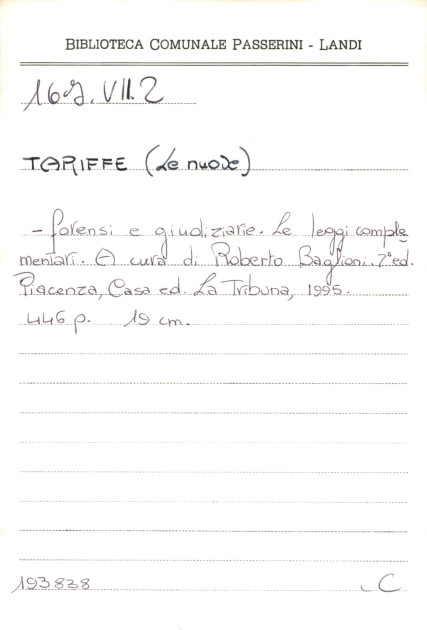 BIBLIOTECA COMUNALE PASSERINI - LANDI
16J. VII. 2
TARIFFE (Le nuove)
- forensi e giudiziarie. Le leggi comple
mentari. A cura di Roberto Baglioni. 7ª ed.
Piacenza, Casa ed. La Tribuna, 1995.
446 p. 19 cm.
193838 C